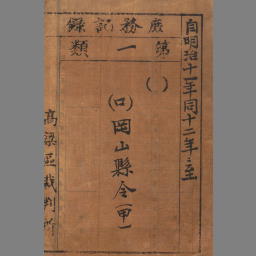 自明治十一年同十二年ニ至
庶務記録
第一類
( )
(口)岡山縣令(甲一
高梁區裁判所